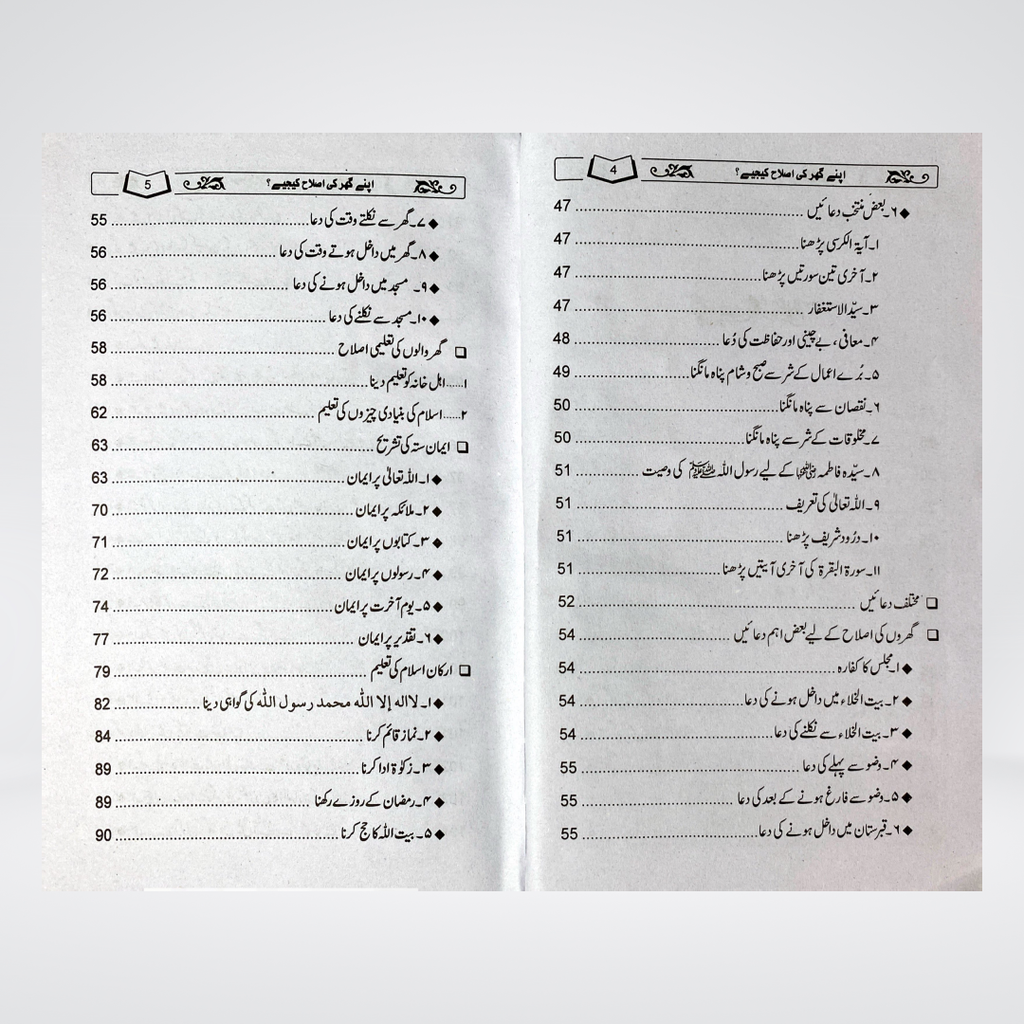 اپنے گھر کی اصلاح کیجیے؟ 4
◆ ۶۔ بعض منتخب دعائیں ........ 47
۱۔ آیۃ الکرسی پڑھنا ........ 47
۲۔ آخری تین سورتیں پڑھنا ........ 47
۳۔ سیّد الاستغفار ........ 47
۴۔ معافی، بے چینی اور حفاظت کی دُعا ........ 48
۵۔ بُرے اعمال کے شر سے صبح و شام پناہ مانگنا ........ 49
۶۔ نقصان سے پناہ مانگنا ........ 50
۷۔ مخلوقات کے شر سے پناہ مانگنا ........ 50
۸۔ سیّدہ فاطمہ رضی اللہ عنہا کے لیے رسول اللہ ﷺ کی وصیت ........ 51
۹۔ اللہ تعالیٰ کی تعریف ........ 51
۱۰۔ درُود شریف پڑھنا ........ 51
۱۱۔ سورۃ البقرۃ کی آخری آیتیں پڑھنا ........ 51
❑ مختلف دعائیں ........ 52
❑ گھروں کی اصلاح کے لیے بعض اہم دعائیں ........ 54
◆ ۱۔ مجلس کا کفارہ ........ 54
◆ ۲۔ بیت الخلاء میں داخل ہونے کی دعا ........ 54
◆ ۳۔ بیت الخلاء سے نکلنے کی دعا ........ 54
◆ ۴۔ وضو سے پہلے کی دعا ........ 55
◆ ۵۔ وضو سے فارغ ہونے کے بعد کی دعا ........ 55
◆ ۶۔ قبرستان میں داخل ہونے کی دعا ........ 55
اپنے گھر کی اصلاح کیجیے؟ 5
◆ ۷۔ گھر سے نکلتے وقت کی دعا ........ 55
◆ ۸۔ گھر میں داخل ہوتے وقت کی دعا ........ 56
◆ ۹۔ مسجد میں داخل ہونے کی دعا ........ 56
◆ ۱۰۔ مسجد سے نکلنے کی دعا ........ 56
❑ گھر والوں کی تعلیمی اصلاح ........ 58
۱......اہل خانہ کو تعلیم دینا ........ 58
۲......اسلام کی بنیادی چیزوں کی تعلیم ........ 62
❑ ایمان ستہ کی تشریح ........ 63
◆ ۱۔ اللہ تعالیٰ پر ایمان ........ 63
◆ ۲۔ ملائکہ پر ایمان ........ 70
◆ ۳۔ کتابوں پر ایمان ........ 71
◆ ۴۔ رسولوں پر ایمان ........ 72
◆ ۵۔ یوم آخرت پر ایمان ........ 74
◆ ۶۔ تقدیر پر ایمان ........ 77
❑ ارکان اسلام کی تعلیم ........ 79
◆ ۱۔ لا اله إلا الله محمد رسول الله کی گواہی دینا ........ 82
◆ ۲۔ نماز قائم کرنا ........ 84
◆ ۳۔ زکوٰۃ ادا کرنا ........ 89
◆ ۴۔ رمضان کے روزے رکھنا ........ 89
◆ ۵۔ بیت اللہ کا حج کرنا ........ 90